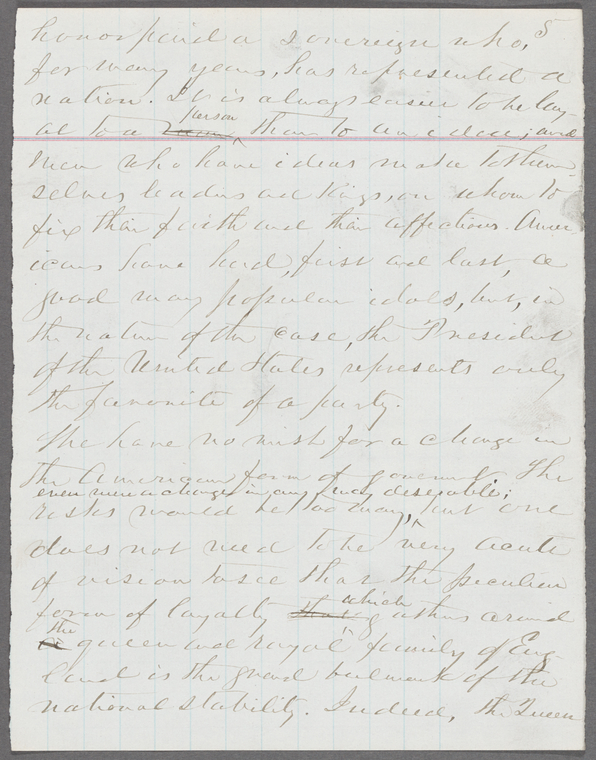 5
honor paid a sovereign who,
for many years, has represented a
nation. It is always easier to be loy-
al to a man person than to an idea; and
men who have ideas make to them-
selves leaders and kings, on whom to
fix their faith and their affections. Amer
icans have had, first and last, a
good many popular idols, but, in
the nature of the case, the President
of the United States represents only
the favorite of a party.
We have no wish for a change in
the American form of goverment. The
even were a change in any way desirable;
risks would be too many, but one
does not need to be very acute
of vision to see that the peculiar
form of loyalty that which gathers around
a the queen and royal family of Eng-
land is the grand bulwark of the
national stability. Indeed, the Queen